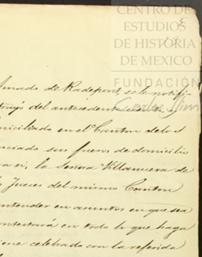 CENTRO DE
ESTUDIOS
DE HISTORIA
DE MEXICO
FUNDACIÓN
Carlos Slim
Amado de Radepont, se le notifi
del antecedente
miciliado en el Canton de los
ciado sus fueros de domicilio
la Señora Villanueva de
Jueces del mismo Canton
entender en asuntos en que sea
ntestará en todo lo que haga
ne celebrado con la referida